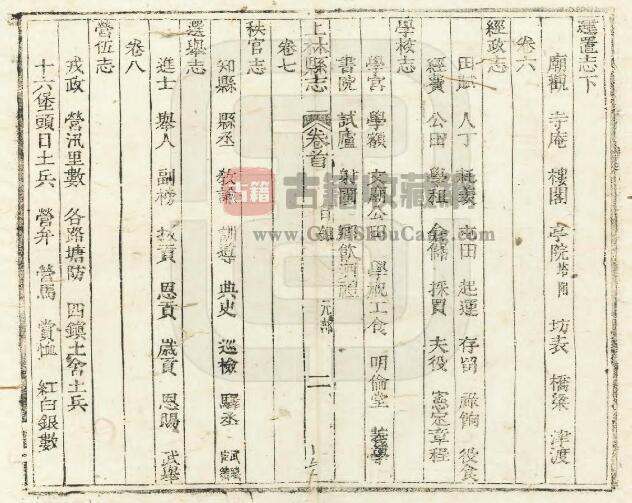 建置志下
廟觀 寺庵 樓閣 亭院 坊表 橋梁 津渡
卷六
經政志
田賦 人丁 耗羨 屯田 起運 存留 祿餉 役食
經費 公田 學租 倉儲 採買 夫役 憲定章程
學校志
學宮 學額 文廟公田 學祝工食 明倫堂 義學
書院 試廬 射圃 鄉飲酒禮
上林縣志 卷首 目錄 二
卷七
秩官志
知縣 縣丞 教諭 訓導 典史 巡檢 驛丞
選舉志
進士 舉人 副榜 拔貢 恩貢 歲貢 恩賜 武舉
卷八
營伍志
戎政 營汛里數 各路塘防 四鎮土舍土兵
十六堡頭目土兵 營弁 營馬 賞恤 紅白銀數
古籍 古籍收藏網
www.GuJiShouCang.com